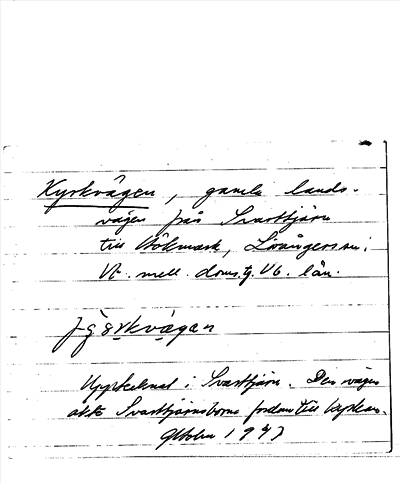 Kyrkvägen, gamla lands-
vägen från Svarttjärn
till Bökmark, Lövångers sn.
Vb. mell. doms.g. Vb. län.
Upptecknat i Svarttjärn. Den vägen
åkte Svarttjärnsborna fordom till kyrkan.
Oktober 1943